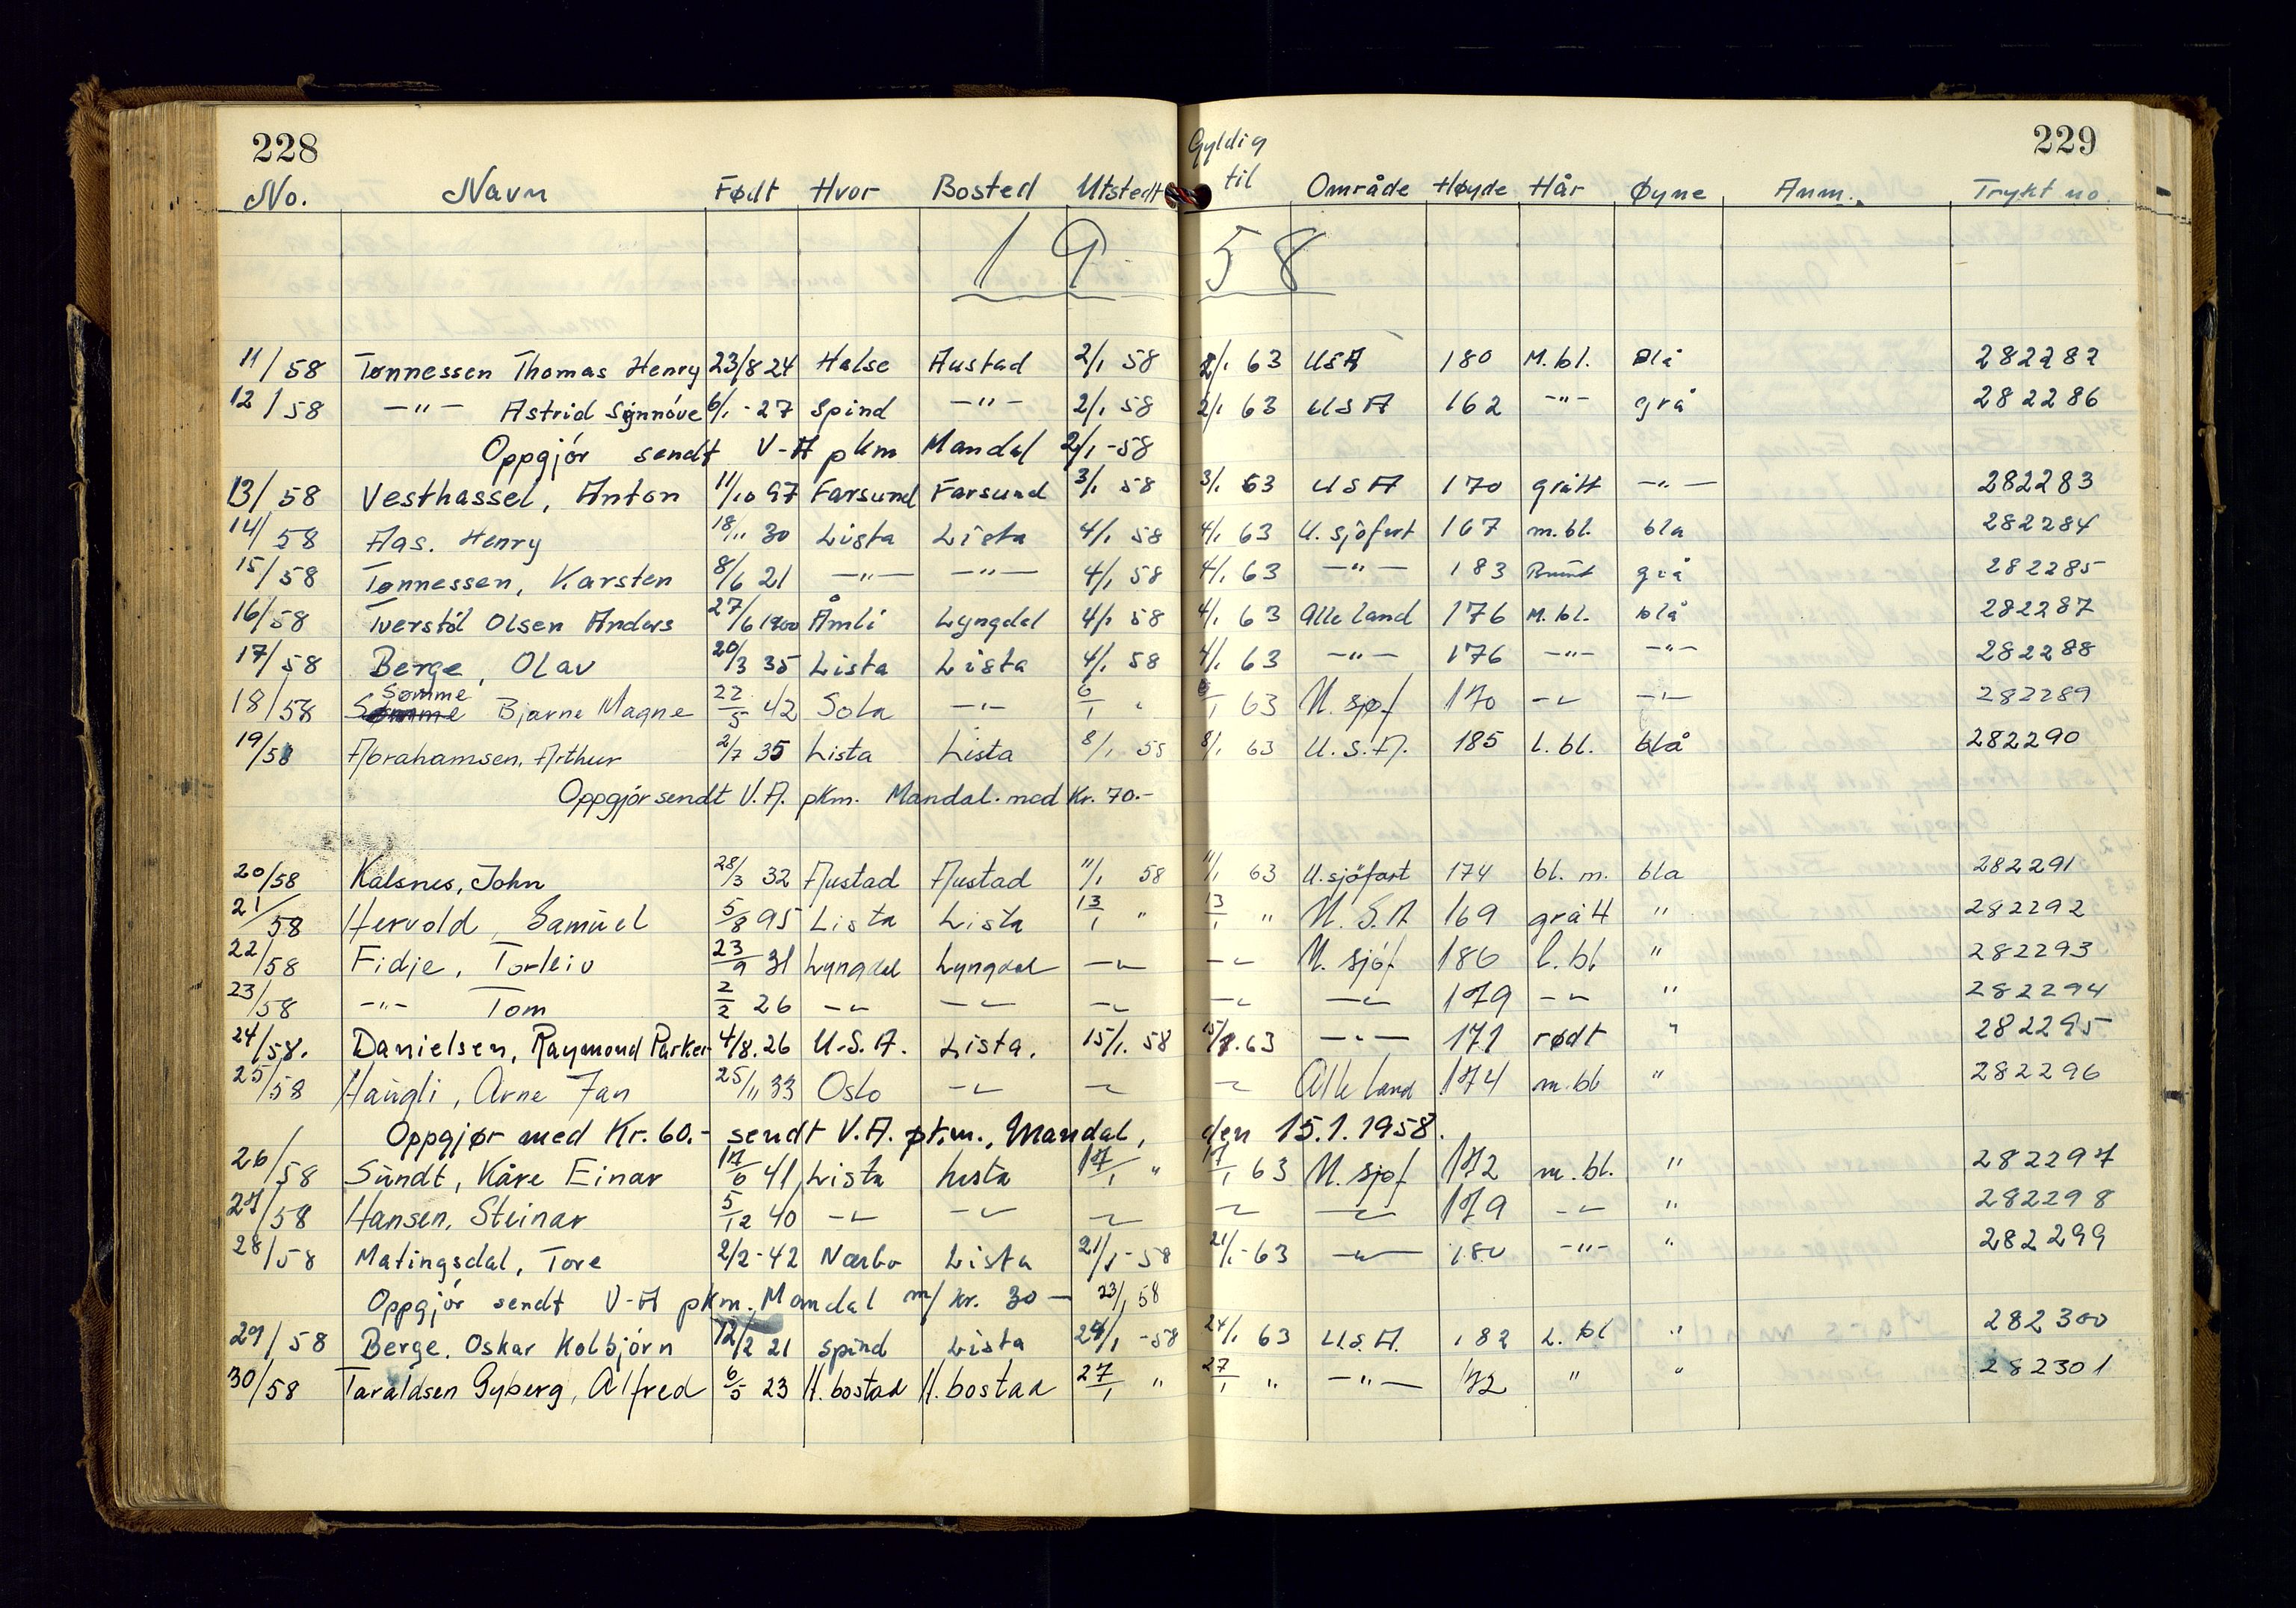 228
229
Gyldig
No. Navn Født Hvor Bosted Utstedt til Område Høyde Hår Øyne Anm. Trykt no.
19 58
11/58 Tønnessen Thomas Henry 23/8 24 Halse Austad 2/1 58 2/1 63 USA 180 M.bl. Blå 282282
12/58 —"— Astrid Synnöve 6/1 -27 Spind —"— 2/1 58 2/1 63 USA 162 —"— grå 282286
Oppgjör sendt V-A pkm Mandal 2/1 -58
13/58 Vesthassel, Anton 11/10 97 Farsund Farsund 3/1 58 3/1 63 USA 170 grått —"— 282283
14/58 Aas. Henry 18/11 30 Lista Lista 4/1 58 4/1 63 U. sjöfart 167 m.bl. bla 282284
15/58 Tønnessen, Karsten 8/6 21 —"— —"— 4/1 58 4/1 63 —"— 183 Brunt grå 282285
16/58 Tverstöl Olsen Anders 27/6 1900 Åmli Lyngdal 4/1 58 4/1 63 Alle land 176 M.bl. blå 282287
17/58 Berge, Olav 20/3 35 Lista Lista 4/1 58 4/1 63 —"— 176 —"— —"— 282288
Sømme
18/58 Sømme Bjarne Magne 22/5 42 Sola —"— 6/1 " 6/1 63 U. sjøf 170 —"— —"— 282289
19/58 Abrahamsen, Arthur 2/7 35 Lista Lista 8/1 58 8/1 63 U.S.A. 185 l. bl. blå 282290
Oppgjör sendt V.A. pkm. Mandal. med Kr. 70.-
20/58 Kalsnes, John 28/3 32 Austad Austad 11/1 58 11/1 63 U.sjöfart 174 bl. m. bla 282291
21/58 Hervold, Samuel 5/8 95 Lista Lista 13/1 " 13/1 " U.S.A 169 grått " 282292
22/58 Fidje, Torleiv 23/9 31 Lyngdal Lyngdal —"— —"— U. sjöf. 186 l. bl " 282293
23/58 —"— Tom 2/2 26 —"— —"— —"— —"— —"— 179 —"— " 282294
24/58. Danielsen, Raymond Parker 4/8. 26 U.S.A. Lista. 15/1. 58 15/1. 63 —"— 171 rødt " 282295
25/58 Haugli, Arne Jan 25/11 33 Oslo —"— —"— —"— Alle land 174 m.bl " 282296
Oppgjør med Kr. 60.- sendt V.A. p.k.m., Mandal, den 15.1.1958.
26/58 Sundt, Kåre Einar 17/6 41 Lista Lista 17/1 " 17/1 63 U. sjøf 172 m. bl. " 282297
27/58 Hansen, Steinar 5/12 40 —"— —"— —"— —"— —"— 179 —"— " 282298
28/58 Matingsdal, Tore 2/2 -42 Nærbø Lista 21/1 -58 21/1 -63 —"— 180 —"— " 282299
Oppgjör sendt V-A pkm. Mandal m/ kr. 30 — 23/1 58
29/58 Berge. Oskar Kolbjörn 12/2 21 Spind Lista 24/1 -58 24/1 63 U.S.A. 182 L. bl " 282300
30/58 Taraldsen Gyberg, Alfred 6/5 23 H. bostad H. bostad 27/1 " 27/1 " —"— 172 " " 282301